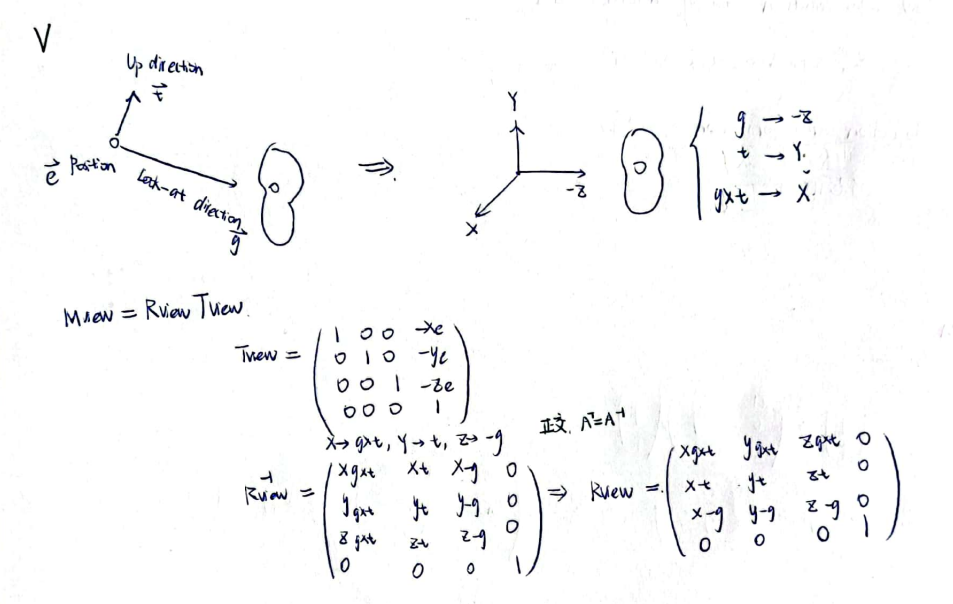 V
Up direction
t⃗
e⃗ Position
Look-at direction
g⃗
⇒
Y
-z
X
g → -z
t → Y.
g×t → X
Mview = Rview Tview.
Tview = ( 1 0 0 -xe
0 1 0 -ye
0 0 1 -ze
0 0 0 1 )
X→g×t, Y→t, Z→-g
正交, Aᵀ=A⁻¹
Rview⁻¹ = ( xg×t xt x-g 0
yg×t yt y-g 0
zg×t zt z-g 0
0 0 0 1 )
⇒ Rview = ( xg×t yg×t zg×t 0
xt yt zt 0
x-g y-g z-g 0
0 0 0 1 )